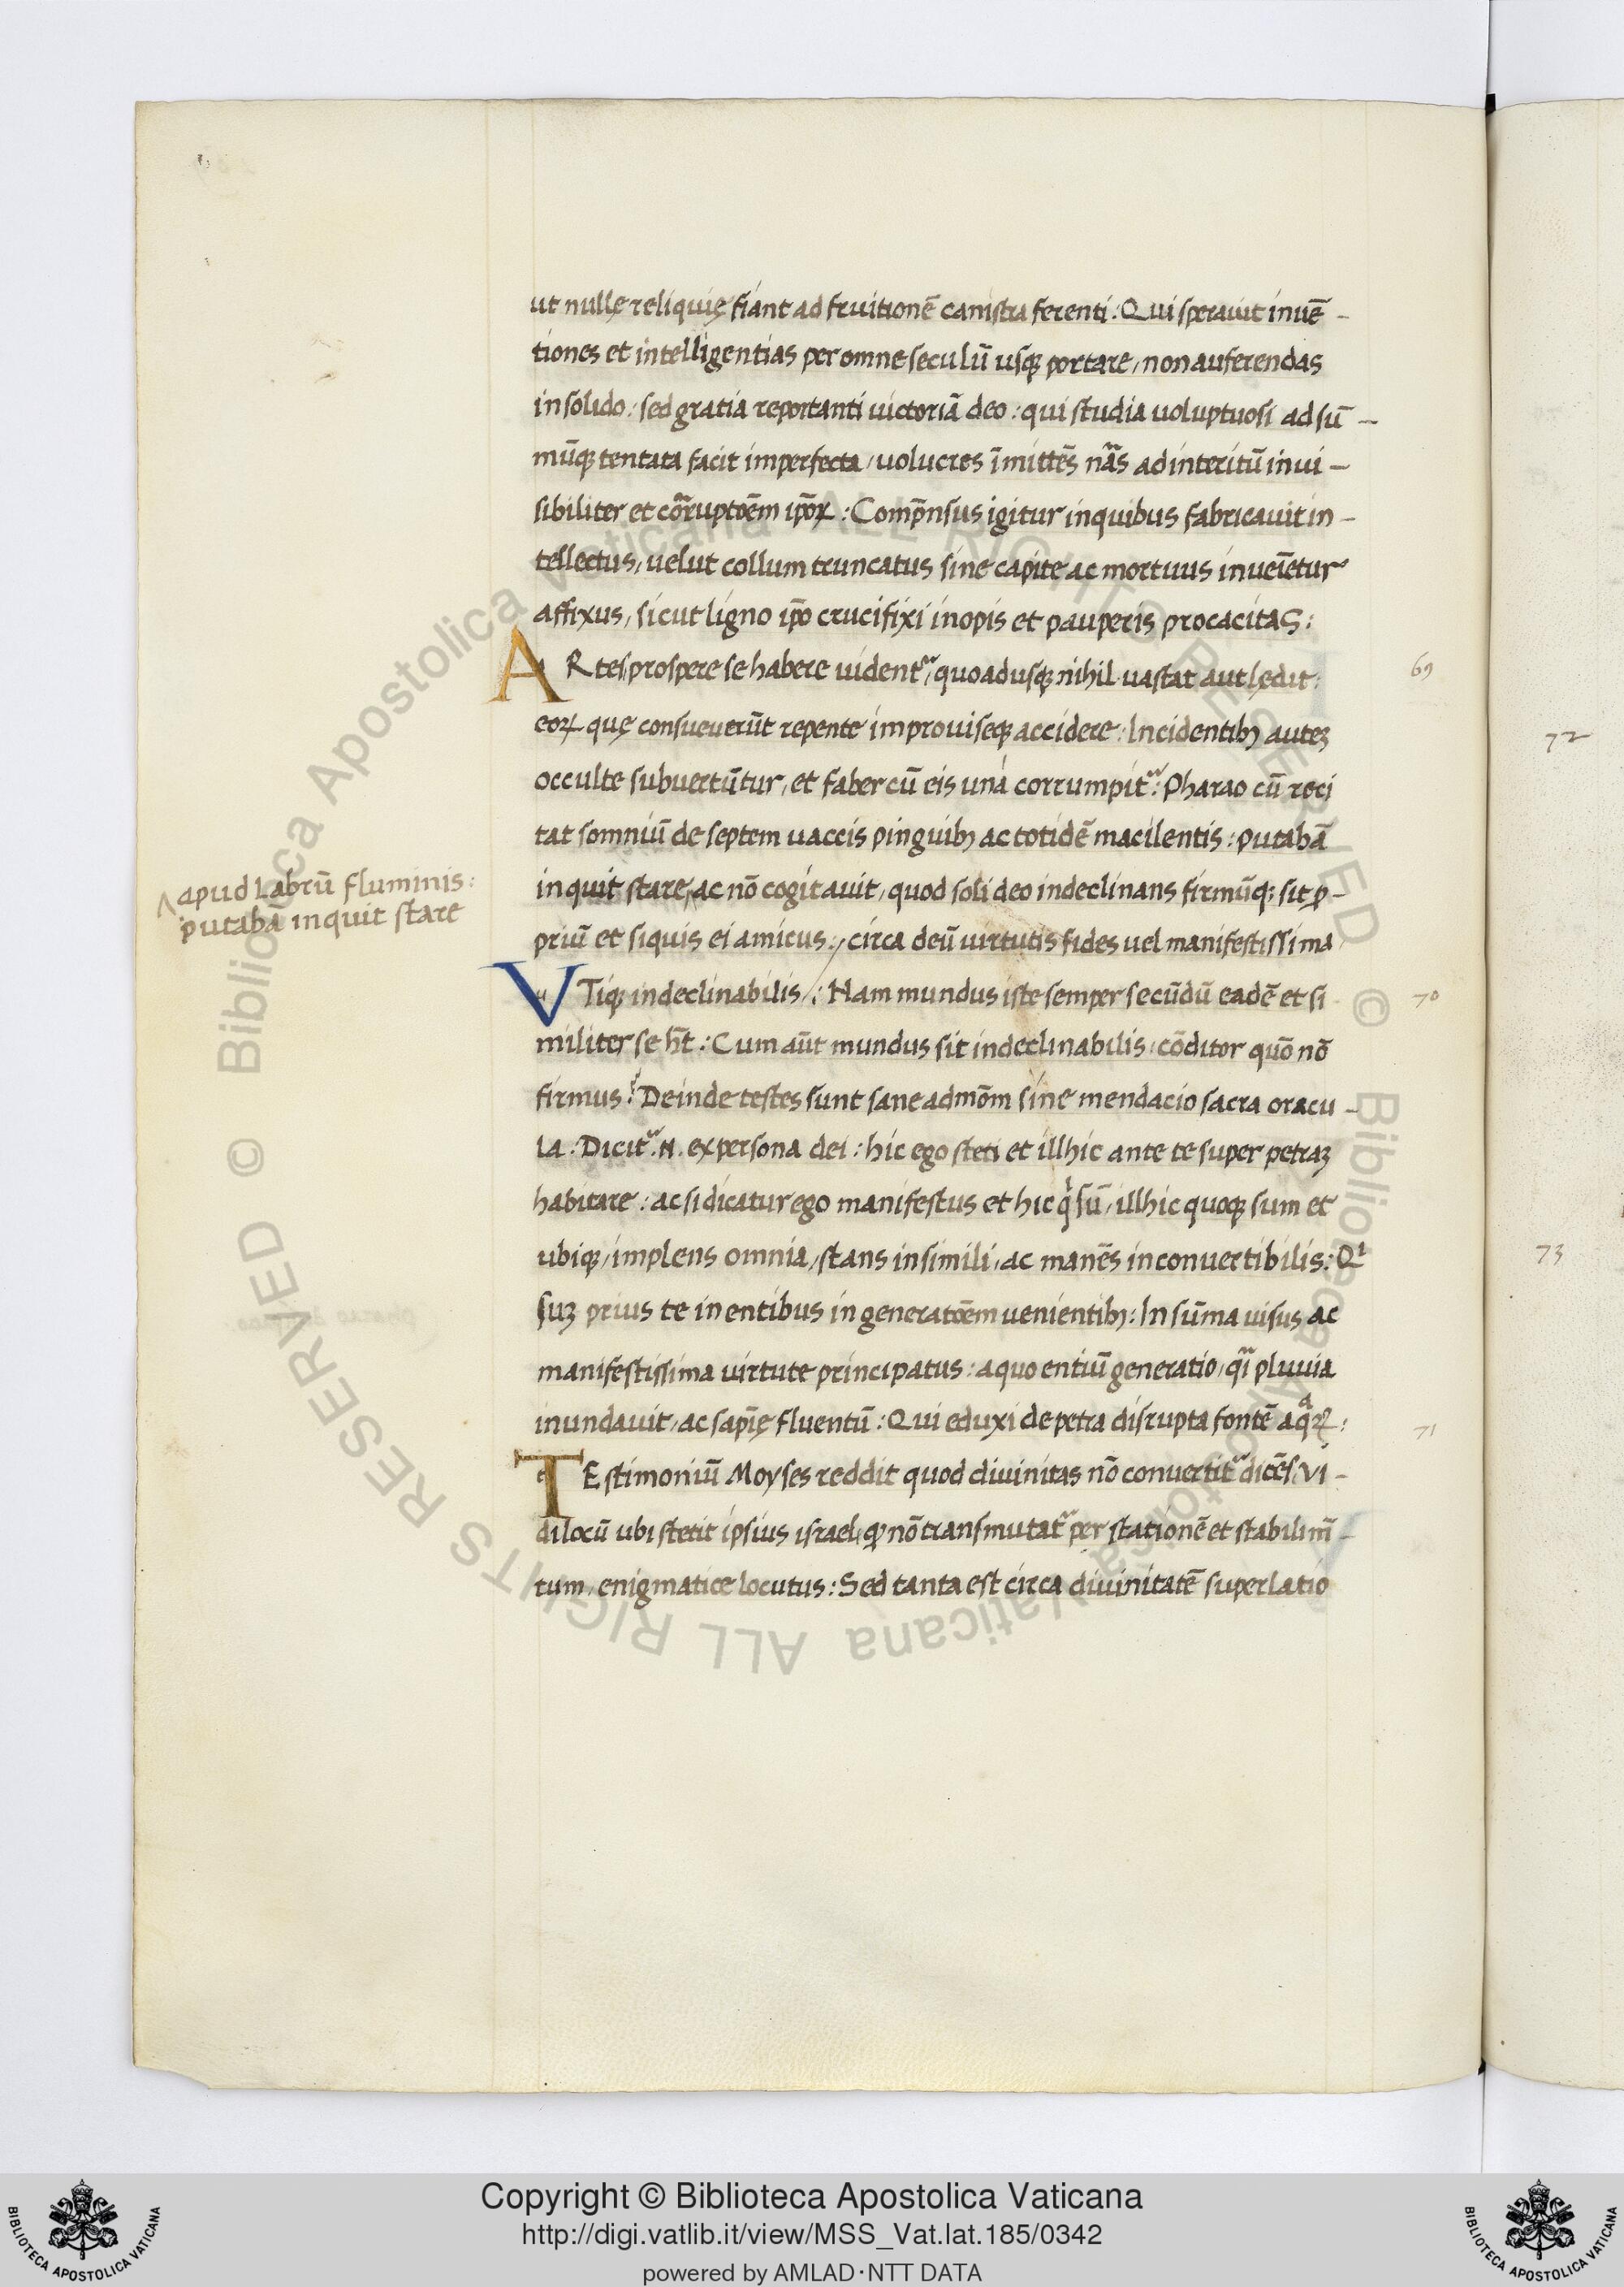 ut nullę reliquię fiant ad fruitionē canistra ferenti: Qui sperauit inuē-
tiones et intelligentias per omne seculū usq; portare, non auferendas
in solido: sed gratia reportanti uictoriā deo: qui studia uoluptuosi ad sū-
mūq; tentata facit imperfecta, uolucres īmittēs nr̄as ad interitū inui-
sibiliter et corruptōem ip̄oꝝ: Comp̄nsus igitur in quibus fabricauit in-
tellectus, uelut collum truncatus sine capite ac mortuus inueīetur
affixus, sicut ligno ip̄o crucifixi inopis et pauperis procacitas:
ARtes prospere se habere uident᷑, quoadusq; nihil uastat aut lędit:
69
eoꝝ quę consueuerūt repente improuiseq; accidere: Incidentib; autez
occulte subuertūtur, et faber cū eis unà corrumpit᷑: Pharao cū reci
72
tat somniū de septem uaccis pinguib; ac totidē macilentis: putabā
inquit stare, ac nō cogitauit, quod soli deo indeclinans firmūq; sit ꝓ-
^apud labrū fluminis:
putabā inquit stare
priū et siquis ei amicus: circa deū uirtutis fides uel manifestissima
VTiq; indeclinabilis: Nam mundus iste semper secūdū eadē et si
70
militer se h̄t: Cum aūt mundus sit indeclinabilis, cōditor quō nō
firmus? Deinde testes sunt sane admōm sine mendacio sacra oracu-
la: Dicit᷑ .N. ex persona dei: hic ego steti et illhic ante te super petraz
habitare: ac si dicatur ego manifestus et hic qͥ sū, illhic quoq; sum et
ubiq;, implens omnia, stans in simili, ac manēs inconuertibilis: Qͥ
73
suz prius te in entibus in generatōem uenientib;: In sūma uisus ac
manifestissima uirtute principatus: a quo entiū generatio, qͣi pluuia
inundauit, ac sapīę fluentū: Qui eduxi de petra disrupta fontē aqͣꝝ:
71
TEstimoniū Moyses reddit quod diuinitas nō conuertit᷑ dicēs: Vi-
di locū ubi stetit ipsius israel, ꝙ nō transmutat᷑ per stationē et stabilim̄-
tum, enigmatice locutus: Sed tanta est circa diuinitatē superlatio
Copyright © Biblioteca Apostolica Vaticana
http://digi.vatlib.it/view/MSS_Vat.lat.185/0342
powered by AMLAD·NTT DATA
BIBLIOTECA APOSTOLICA VATICANA
BIBLIOTECA APOSTOLICA VATICANA
© Biblioteca Apostolica Vaticana ALL RIGHTS RESERVED © Biblioteca Apostolica Vaticana ALL RIGHTS RESERVED